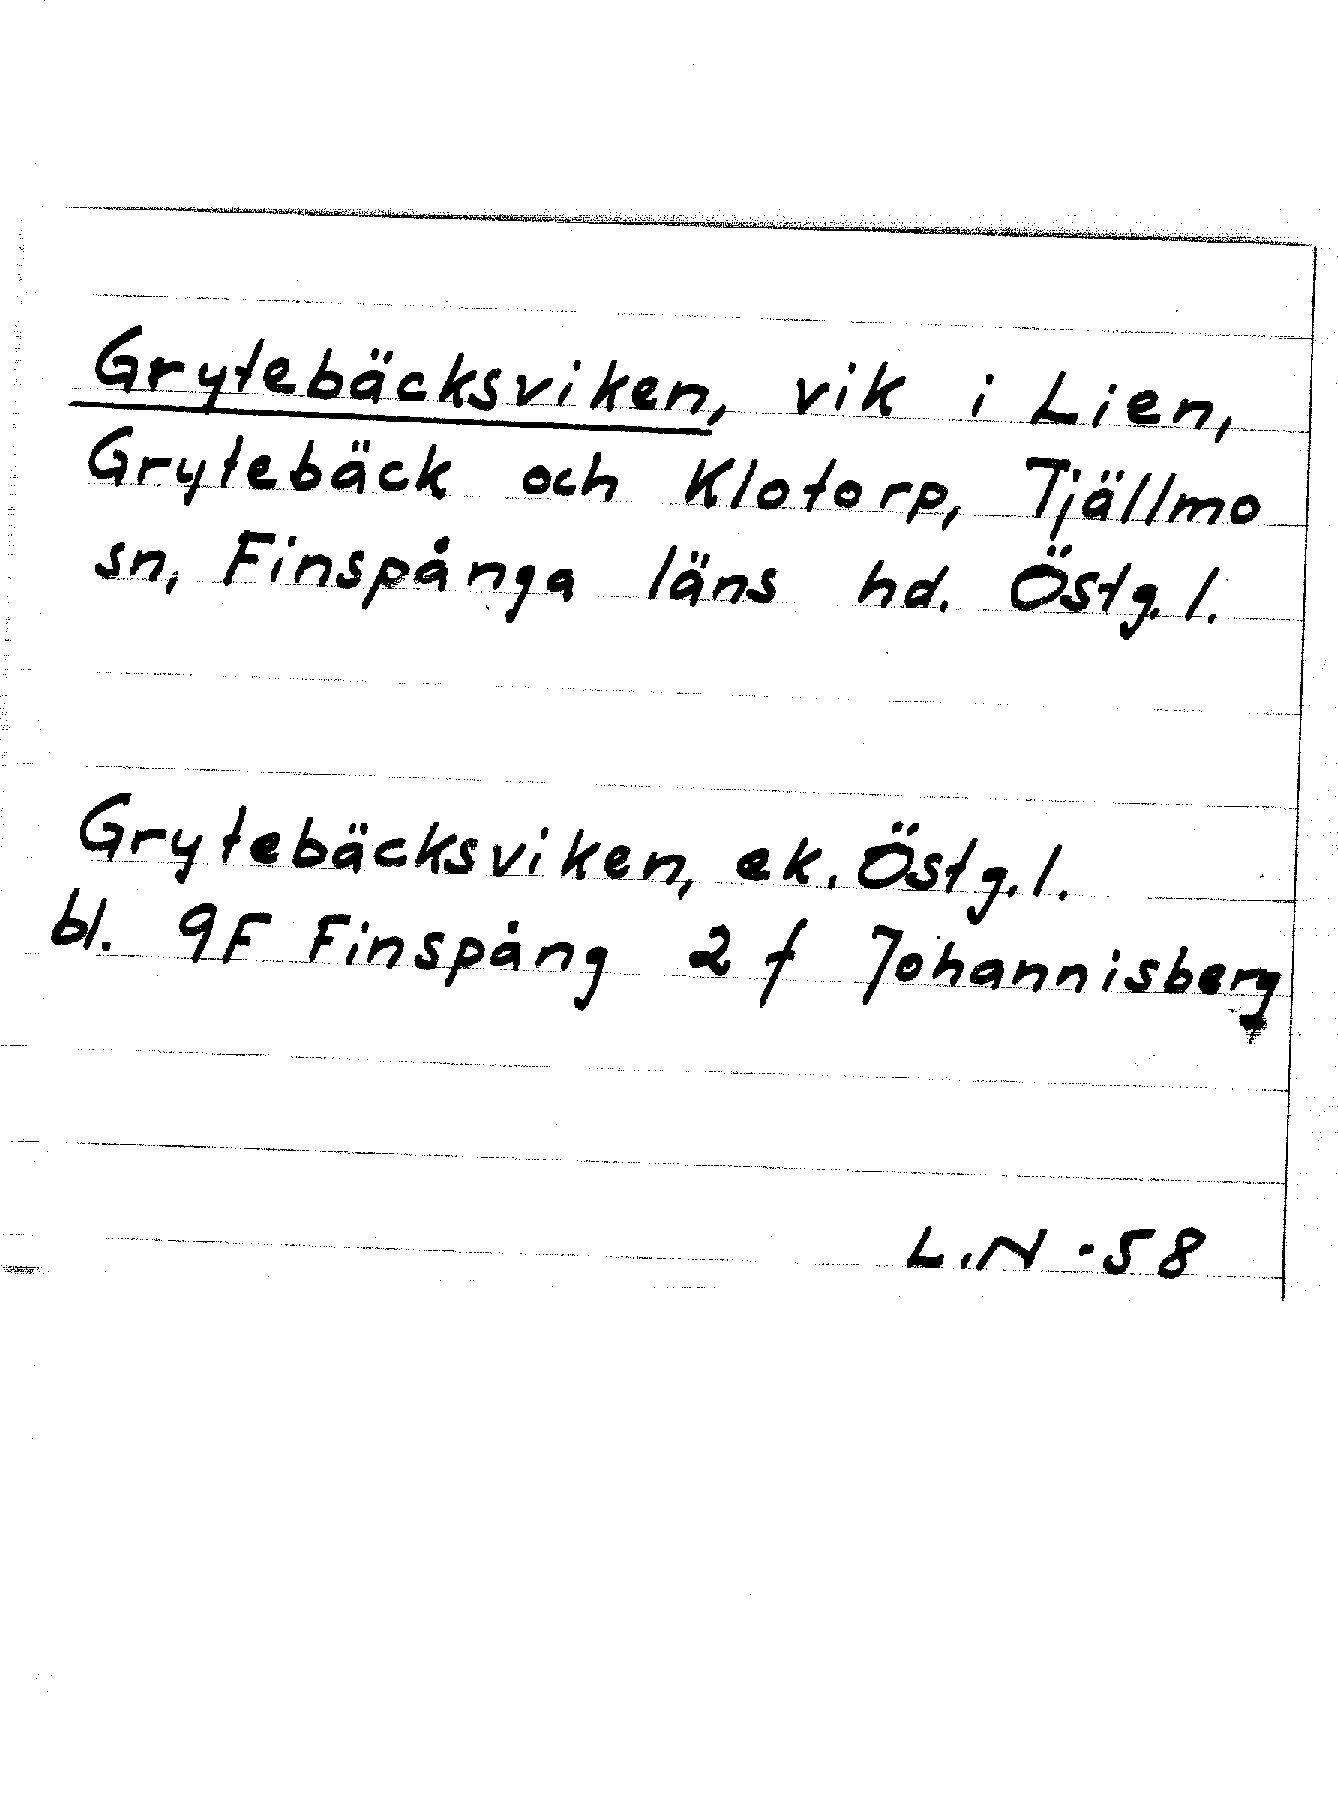 Grytebäcksviken, vik i Lien,
Grytebäck och Klotorp, Tjällmo
sn, Finspånga läns hd. Östg. l.
Grytebäcksviken, ek. Östg. l.
bl. 9F Finspång 2 f Johannisberg
L.N -58